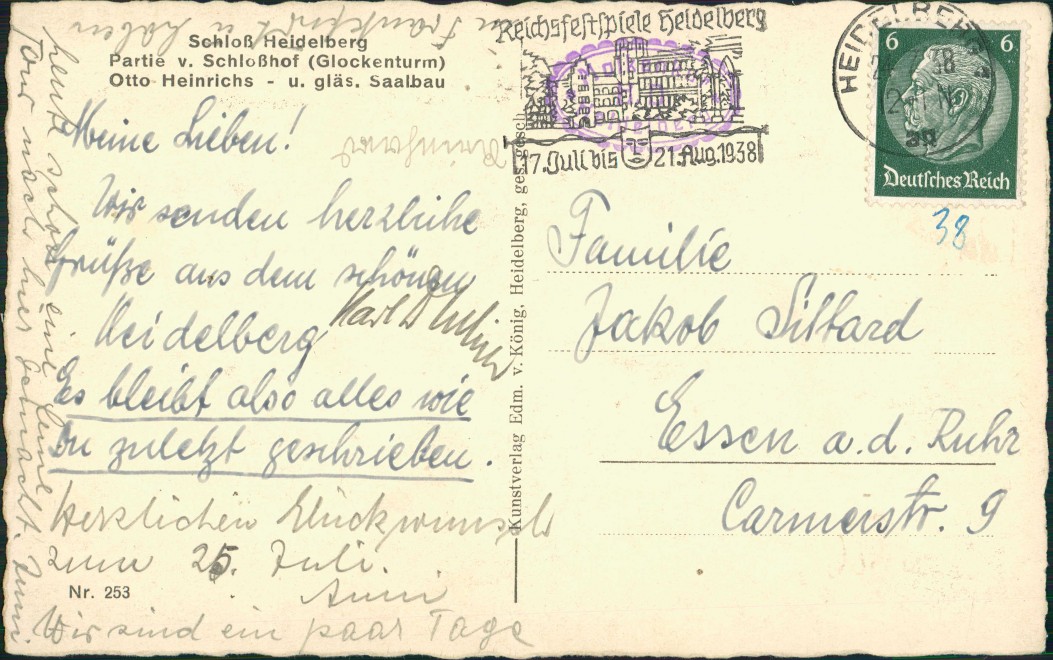 Schloß Heidelberg
Partie v. Schloßhof (Glockenturm)
Otto Heinrichs - u. gläs. Saalbau
Meine Lieben!
Wir senden herzliche
Grüße aus dem schönen
Heidelberg
Es bleibt also alles wie
Du zuletzt geschrieben.
Herzlichen Glückwunsch
zum 25. Juli.
Anni
Wir sind ein paar Tage
in Frankfurt u. haben
heute schon eine
Tour nach hier gemacht.
Nr. 253
Kunstverlag Edm. v. König, Heidelberg, ges. gesch.
Reichsfestspiele Heidelberg
17. Juli bis 21. Aug. 1938
HEIDELBERG
6 6
Deutsches Reich
38
Familie
Jakob Sittard
Essen a.d. Ruhr
Carmerstr. 9